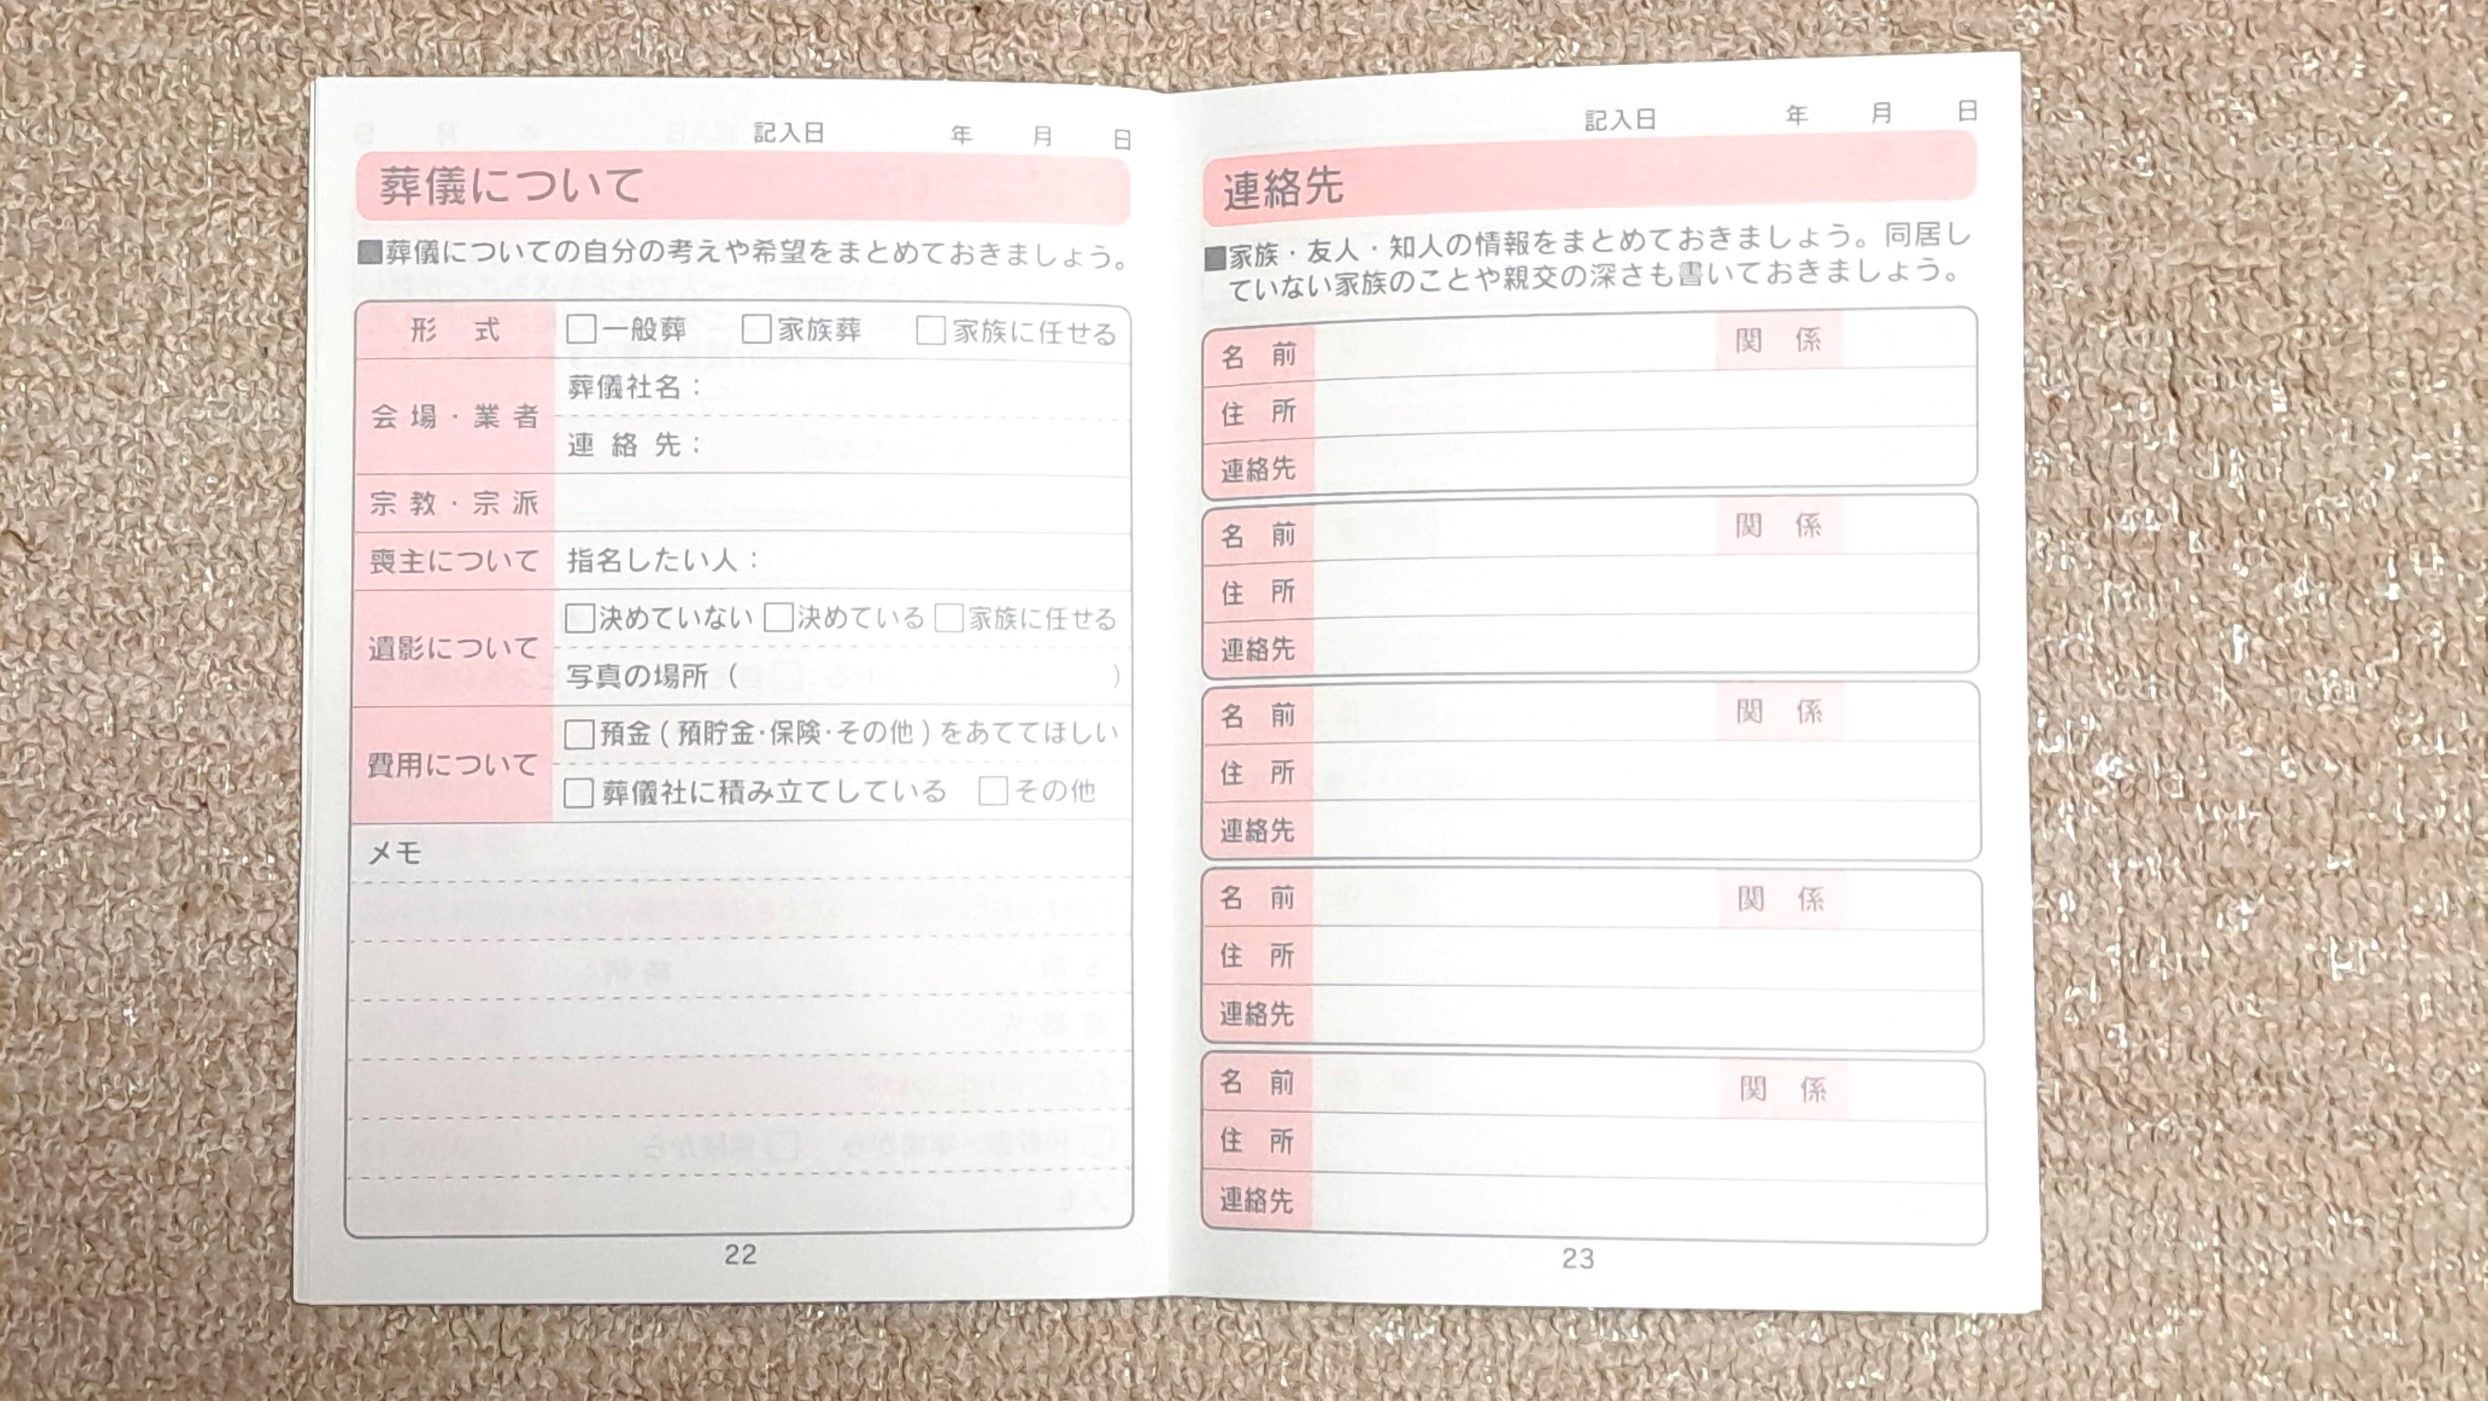 記入日 年 月 日
葬儀について
■葬儀についての自分の考えや希望をまとめておきましょう。
形 式 □一般葬 □家族葬 □家族に任せる
会場・業者 葬儀社名：
連絡先：
宗教・宗派
喪主について 指名したい人：
遺影について □決めていない □決めている □家族に任せる
写真の場所（ ）
費用について □預金(預貯金・保険・その他)をあててほしい
□葬儀社に積み立てしている □その他
メモ
22
記入日 年 月 日
連絡先
■家族・友人・知人の情報をまとめておきましょう。同居し
ていない家族のことや親交の深さも書いておきましょう。
名 前 関 係
住 所
連絡先
名 前 関 係
住 所
連絡先
名 前 関 係
住 所
連絡先
名 前 関 係
住 所
連絡先
名 前 関 係
住 所
連絡先
23